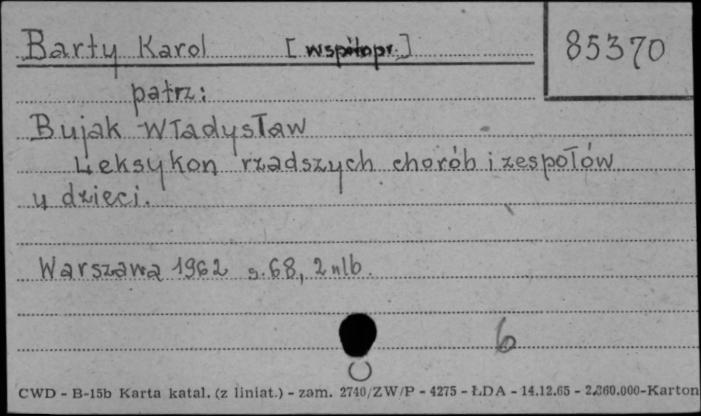 Barty Karol [współopr.] 85370
patrz:
Bujak Władysław
Leksykon rzadszych chorób i zespołów
u dzieci.
Warszawa 1962 s. 68, 2 nlb.
6
CWD - B-15b Karta katal. (z liniat.) - zam. 2740/ZW/P - 4275 - ŁDA - 14.12.65 - 2.360.000-Karton